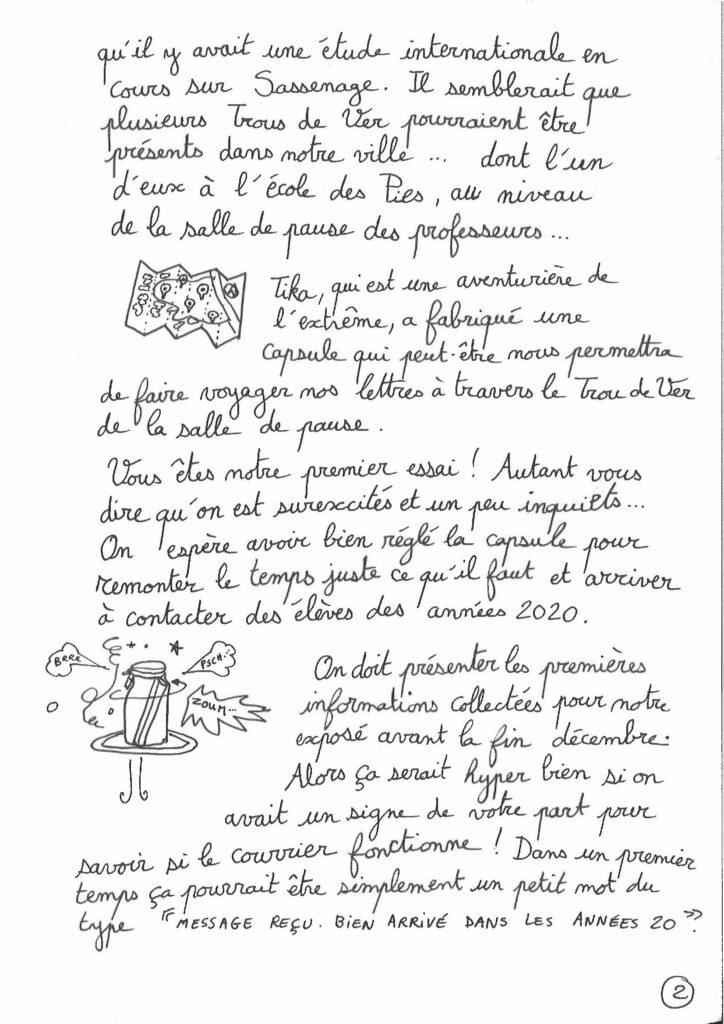 qu'il y avait une étude internationale en
cours sur Sassenage. Il semblerait que
plusieurs Trous de Ver pourraient être
présents dans notre ville ... dont l'un
d'eux à l'école des Pies, au niveau
de la salle de pause des professeurs...
Tika, qui est une aventurière de
l'extrême, a fabriqué une
capsule qui peut-être nous permettra
de faire voyager nos lettres à travers le Trou de Ver
de la salle de pause.
Vous êtes notre premier essai ! Autant vous
dire qu'on est surexcités et un peu inquiets...
On espère avoir bien réglé la capsule pour
remonter le temps juste ce qu'il faut et arriver
à contacter des élèves des années 2020.
BRRR
PSCH..
ZOUM...
On doit présenter les premières
informations collectées pour notre
exposé avant la fin décembre.
Alors ça serait hyper bien si on
avait un signe de votre part pour
savoir si le courrier fonctionne ! Dans un premier
temps ça pourrait être simplement un petit mot du
type "MESSAGE REÇU. BIEN ARRIVÉ DANS LES ANNÉES 20".
2